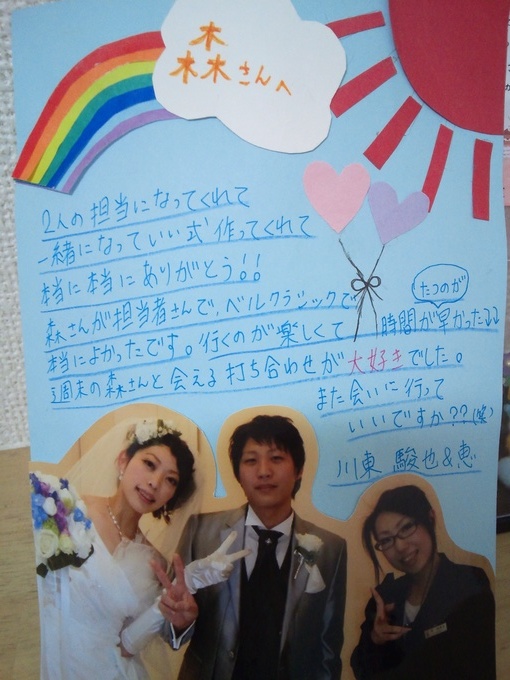 森さんへ
2人の担当になってくれて
一緒になっていい式 作ってくれて
本当に本当にありがとう!!
森さんが担当者さんでベルクラシックで
本当によかったです。行くのが楽しくて 時間が早かった
たつのが
週末の森さんと会える打ち合わせが大好きでした。
また会いに行って
いいですか??(笑)
川東 駿也&恵